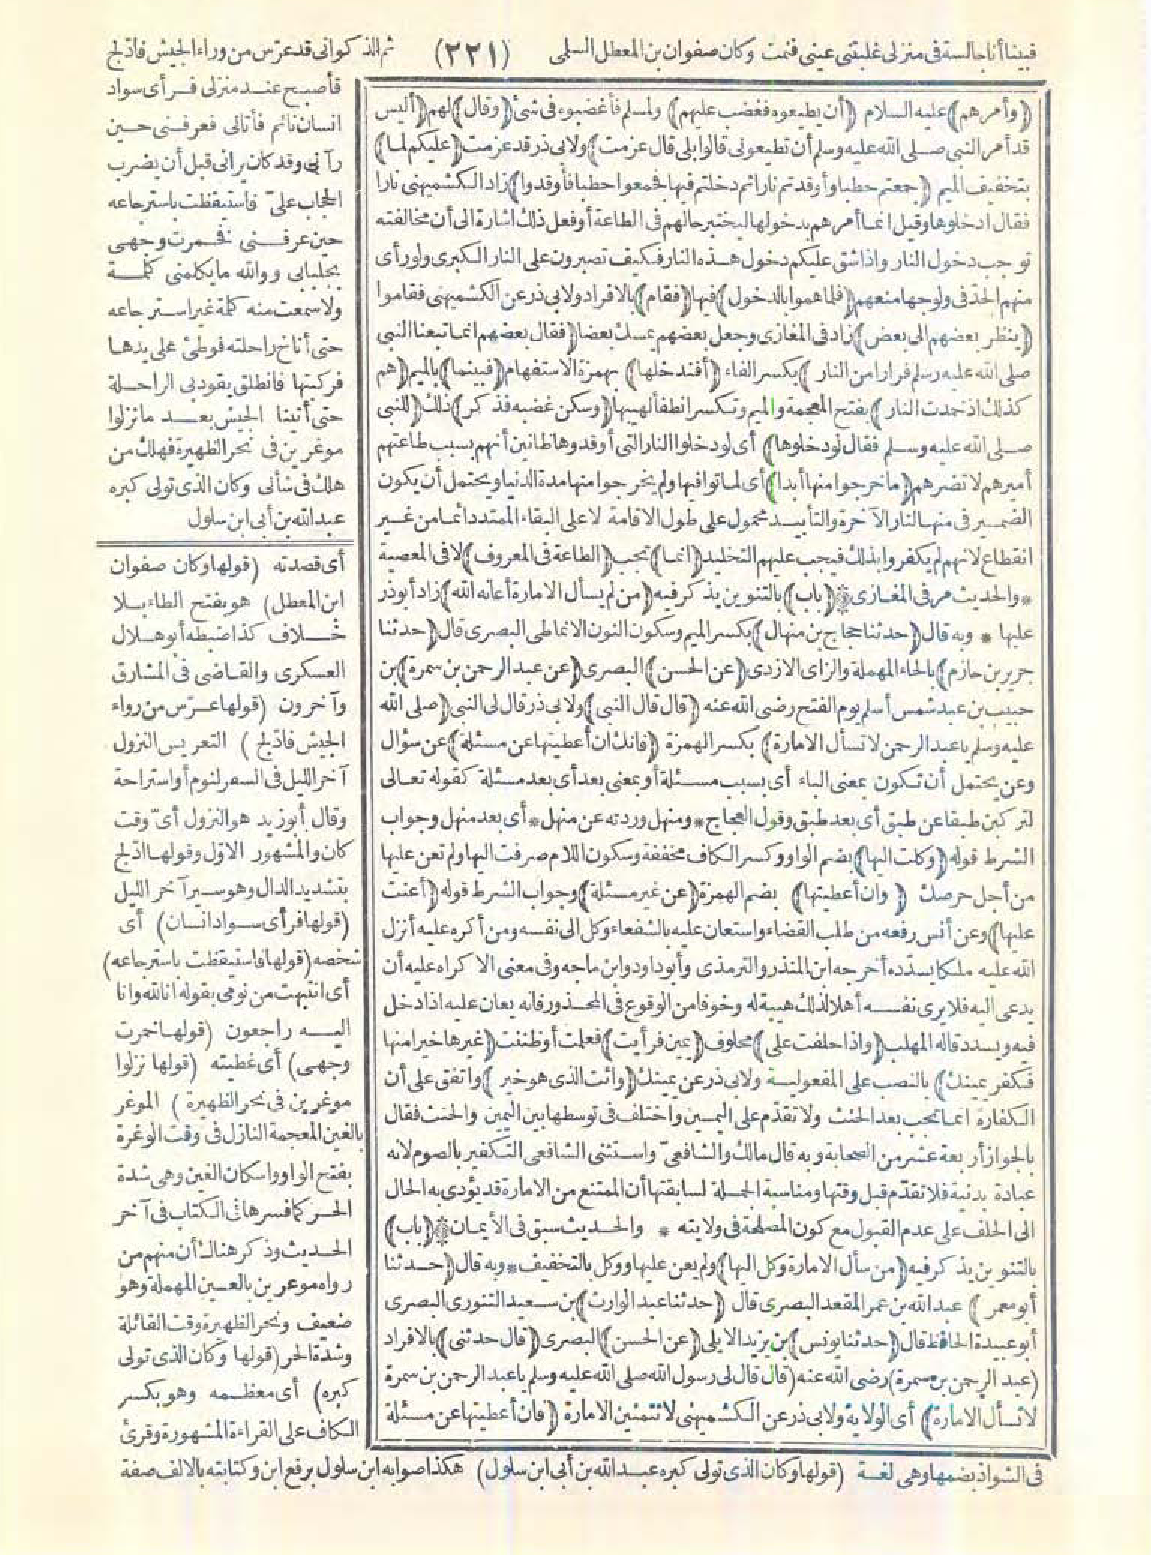 فبينا أنا جالسة في منزلي غلبتني عيني فنمت وكان صفوان بن المعطل السلمي (٢٢١) ثم الذكواني قد عرّس من وراء الجيش فادّلج
فأصبح عند منزلي فرأى سواد
انسان نائم فأتاني فعرفني حين
رآني وقد كان يراني قبل أن يضرب
الحجاب عليّ فاستيقظت باسترجاعه
حين عرفني فخمرت وجهي
بجلبابي ووالله ما يكلمني كلمة
ولا سمعت منه كلمة غير استرجاعه
حتى أناخ راحلته فوطئ على يدها
فركبتها فانطلق يقود بي الراحلة
حتى أتينا الجيش بعد ما نزلوا
موغرين في نحر الظهيرة فهلك من
هلك في شأني وكان الذي تولى كبره
عبد الله بن أبي ابن سلول
(وأمرهم) عليه السلام (أن يطيعوه فغضب عليهم) ولمسلم فأغضبوه في شئ (وقال) لهم (أليس
قد أمر النبي صلى الله عليه وسلم أن تطيعوني قالوا بلى قال عزمت) ولابي ذر قد عزمت (عليكم لما)
بتخفيف الميم (جمعتم حطبا وأوقدتم نارا ثم دخلتم فيها فجمعوا حطبا فأوقدوا) زاد الكشميهني نارا
فقال ادخلوها وقيل انما أمرهم بدخولها ليختبر حالهم في الطاعة أو فعل ذلك اشارة الى أن مخالفته
توجب دخول النار واذا شق عليكم دخول هذه النار فكيف تصبرون على النار الكبرى ولو رأى
منهم الجد في ولوجها منعهم (فلما هموا بالدخول) فيها (فقام) بالافراد ولابي ذر عن الكشميهني فقاموا
(ينظر بعضهم الى بعض) زاد في المغازي وجعل بعضهم يمسك بعضا (فقال بعضهم انما تبعنا النبي
صلى الله عليه وسلم فرارا من النار) بكسر الفاء (أفندخلها) بهمزة الاستفهام (فبينما) بالميم (هم
كذلك اذ خمدت النار) بفتح المعجمة والميم وتكسر انطفأ لهيبها (وسكن غضبه فذكر) ذلك (للنبي
صلى الله عليه وسلم فقال لو دخلوها) أي لو دخلوا النار التي أوقدوها ظانين أنهم بسبب طاعتهم
أميرهم لا تضرهم (ما خرجوا منها أبدا) أي لماتوا فيها ولم يخرجوا منها مدة الدنيا ويحتمل أن يكون
الضمير في منها لنار الآخرة والتأبيد محمول على طول الاقامة لا على البقاء الممتد دائما من غير
انقطاع لانهم لم يكفروا بذلك فيجب عليهم التخليد (انما) تجب (الطاعة في المعروف) لا في المعصية
* والحديث مر في المغازي * (باب) بالتنوين يذكر فيه (من لم يسأل الامارة أعانه الله) زاد أبو ذر
عليها * وبه قال (حدثنا حجاج بن منهال) بكسر الميم وسكون النون الانماطي البصري قال (حدثنا
جرير بن حازم) بالحاء المهملة والزاي الازدي (عن الحسن) البصري (عن عبد الرحمن بن سمرة) بن
حبيب بن عبد شمس أسلم يوم الفتح رضي الله عنه (قال قال النبي) ولابي ذر قال لي النبي (صلى الله
عليه وسلم يا عبد الرحمن لا تسأل الامارة) بكسر الهمزة (فانك ان أعطيتها عن مسئلة) عن سؤال
وعن يحتمل أن تكون بمعنى الباء أي بسبب مسئلة أو بمعنى بعد أي بعد مسئلة كقوله تعالى
لتركبن طبقا عن طبق أي بعد طبق وقول العجاج * ومنهل وردته عن منهل * أي بعد منهل وجواب
الشرط قوله (وكلت اليها) بضم الواو وكسر الكاف مخففة وسكون اللام صرفت اليها ولم تعن عليها
من أجل حرصك (وان أعطيتها) بضم الهمزة (عن غير مسئلة) وجواب الشرط قوله (أعنت
عليها) وعن أنس رفعه من طلب القضاء واستعان عليه بالشفعاء وكل الى نفسه ومن أكره عليه أنزل
الله عليه ملكا يسدده أخرجه ابن المنذر والترمذي وأبو داود وابن ماجه وفي معنى الاكراه عليه أن
يدعى اليه فلا يرى نفسه أهلا لذلك هيبة له وخوفا من الوقوع في المحذور فانه يعان عليه اذا دخل
فيه ويسدد قاله المهلب (واذا حلفت على) محلوف (يمين فرأيت) فعلمت أو ظننت (غيرها خيرا منها
فكفر يمينك) بالنصب على المفعولية ولابي ذر عن يمينك (وائت الذي هو خير) واتفق على أن
الكفارة انما تجب بعد الحنث ولا تقدّم على اليمين واختلف في توسطها بين اليمين والحنث فقال
بالجواز أربعة عشر من الصحابة وبه قال مالك والشافعيّ واستثنى الشافعي التكفير بالصوم لانه
عبادة بدنية فلا تقدّم قبل وقتها ومناسبة الجملة لسابقتها أن الممتنع من الامارة قد يؤدي به الحال
الى الحلف على عدم القبول مع كون المصلحة في ولايته * والحديث سبق في الأيمان * (باب)
بالتنوين يذكر فيه (من سأل الامارة وكل اليها) ولم يعن عليها ووكل بالتخفيف * وبه قال (حدثنا
أبو معمر) عبد الله بن عمر المقعد البصري قال (حدثنا عبد الوارث) بن سعيد التنوري البصري
أبو عبيدة الحافظ قال (حدثنا يونس) بن يزيد الايلي (عن الحسن) البصري (قال حدثني) بالافراد
(عبد الرحمن بن سمرة) رضي الله عنه (قال قال لي رسول الله صلى الله عليه وسلم يا عبد الرحمن بن سمرة
لا تسأل الامارة) أي الولاية ولابي ذر عن الكشميهني لا تتمنين الامارة (فان أعطيتها عن مسئلة
أي قصدته (قولها وكان صفوان
ابن المعطل) هو بفتح الطاء بلا
خلاف كذا ضبطه أبو هلال
العسكري والقاضي في المشارق
وآخرون (قولها عرّس من وراء
الجيش فادّلج) التعريس النزول
آخر الليل في السفر لنوم أو استراحة
وقال أبو زيد هو النزول أيّ وقت
كان والمشهور الاوّل وقولها ادّلج
بتشديد الدال وهو سير آخر الليل
(قولها فرأى سواد انسان) أي
شخصه (قولها فاستيقظت باسترجاعه)
أي انتبهت من نومي بقوله انا لله وانا
اليه راجعون (قولها خمرت
وجهي) أي غطيته (قولها نزلوا
موغرين في نحر الظهيرة) الموغر
بالغين المعجمة النازل في وقت الوغرة
بفتح الواو واسكان الغين وهي شدة
الحر كما فسرها في الكتاب في آخر
الحديث وذكر هنالك أن منهم من
رواه موعرين بالعين المهملة وهو
ضعيف ونحر الظهيرة وقت القائلة
وشدّة الحر (قولها وكان الذي تولى
كبره) أي معظمه وهو بكسر
الكاف على القراءة المشهورة وقرئ
في الشواذ بضمها وهي لغة (قولها وكان الذي تولى كبره عبد الله بن أبي ابن سلول) هكذا صوابه ابن سلول برفع ابن وكتابته بالالف صفة